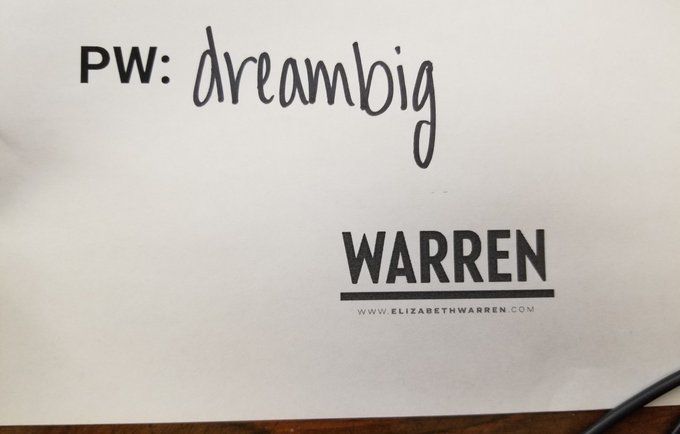 PW: dreambig
WARREN
WWW.ELIZABETHWARREN.COM